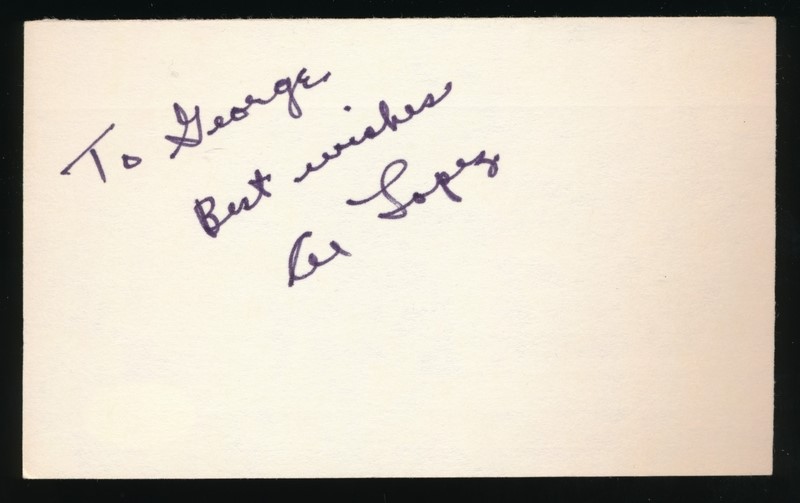 To George
Best wishes
Al Lopez